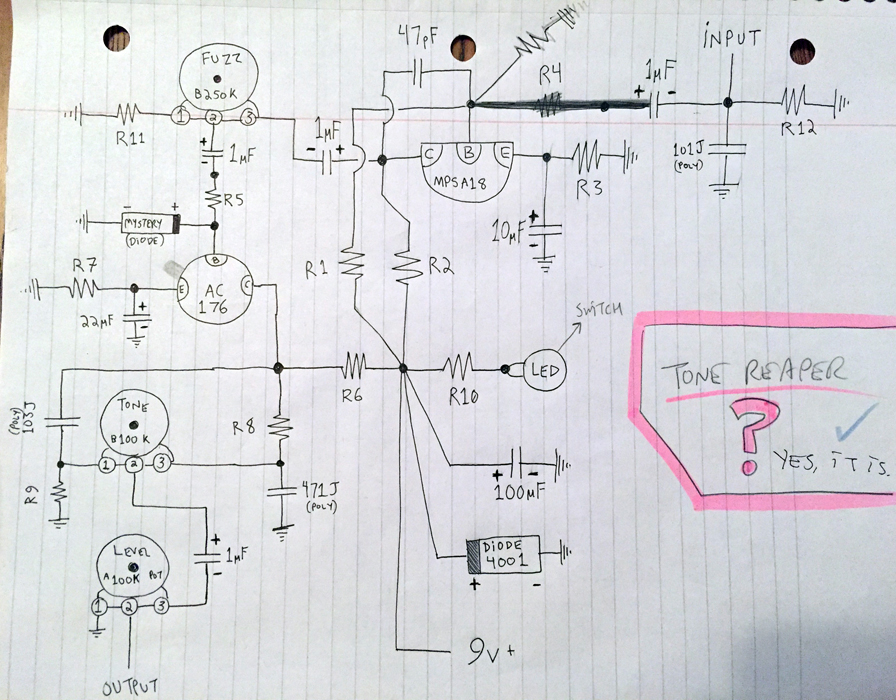 47pF
INPUT
FUZZ
B250K
R4
1µF
+
-
1
2
3
R11
1µF
-
+
R12
101J
(POLY)
+
1µF
C
B
E
MPSA18
R3
R5
-
+
MYSTERY
(DIODE)
10µF
+
-
B
R7
E
AC
176
C
R1
R2
22µF
+
-
SWITCH
LED
TONE REAPER
?
YES, iT iS.
R6
R10
(POLY)
103J
TONE
B100K
R8
1
2
3
R9
471J
(POLY)
+
-
100µF
LEVEL
A100K POT
+
1µF
-
DIODE
4001
+
-
1
2
3
9V+
OUTPUT